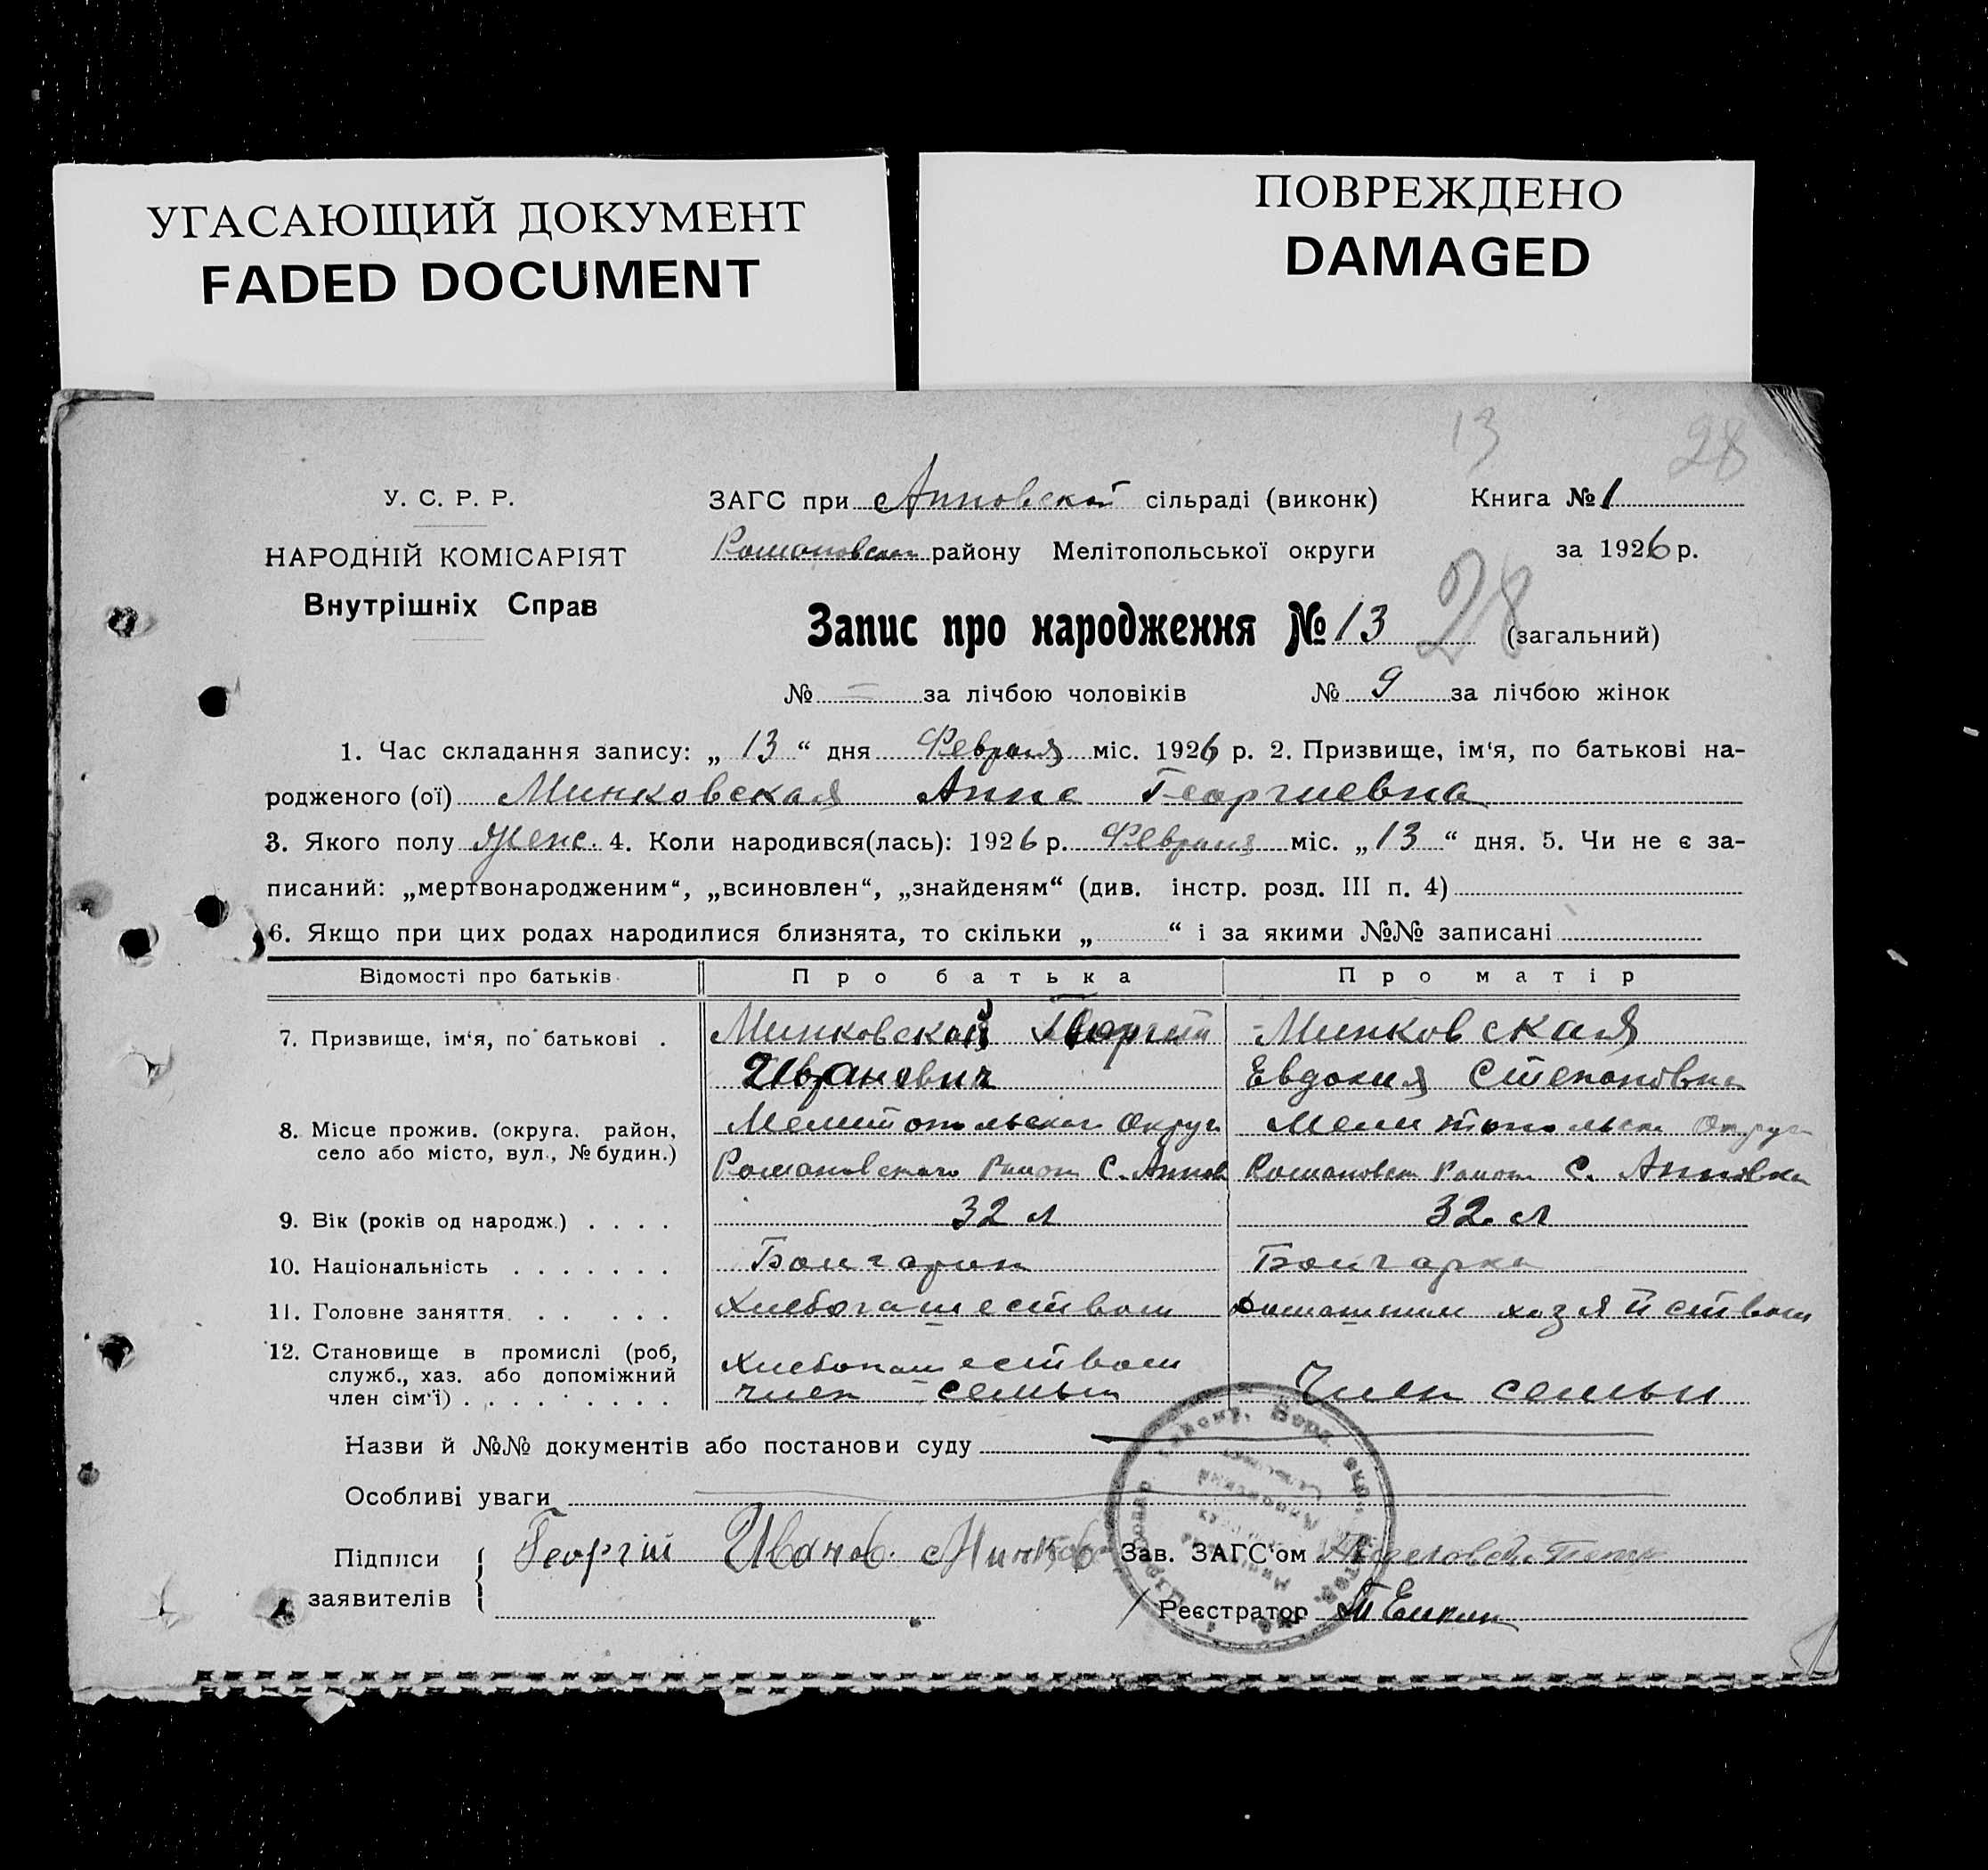 УГАСАЮЩИЙ ДОКУМЕНТ
FADED DOCUMENT
ПОВРЕЖДЕНО
DAMAGED
13 28
У. С. Р. Р.
НАРОДНІЙ КОМІСАРІЯТ
Внутрішніх Справ
ЗАГС при Анновской сільраді (виконк) Книга № 1
Романовского району Мелітопольської округи за 1926 р.
Запис про народження № 13 28 (загальний)
№ = за лічбою чоловіків № 9 за лічбою жінок
1. Час складання запису: „ 13 “ дня Февраля міс. 1926 р. 2. Призвище, ім‘я, по батькові на-
родженого (ої) Минковская Анна Георгиевна
3. Якого полу женс. 4. Коли народився(лась): 1926 р. Февраля міс. „ 13 “ дня. 5. Чи не є за-
писаний: „мертвонародженим“, „всиновлен“, „знайденям“ (див. інстр. розд. III п. 4)
6. Якщо при цих родах народилися близнята, то скільки „ “ і за якими №№ записані
Відомості про батьків Про батька Про матір
7. Призвище, ім‘я, по батькові . Минковской Георгий Минковская
Иванович Евдокия Степановна
8. Місце прожив. (округа, район, село або місто, вул., № будин.) Мелитопольског Округ Мелитопольск Округ
Романовского Район С. Аннов Романовск Район С. Анновка
9. Вік (років од народж.) . . . . 32 л 32 л
10. Національність . . . . . . . Болгарин Болгарка
11. Головне заняття . . . . . Хлебопашеством домашним хозяйством
12. Становище в промислі (роб, служб., хаз. або допоміжний член сім‘ї) . . . . . . . . Хлебопашеством
член семьи Член семьи
Назви й №№ документів або постанови суду
Особливі уваги
Підписи заявителів Георгій Иванов. Минков Зав. ЗАГС‘ом
Реєстратор